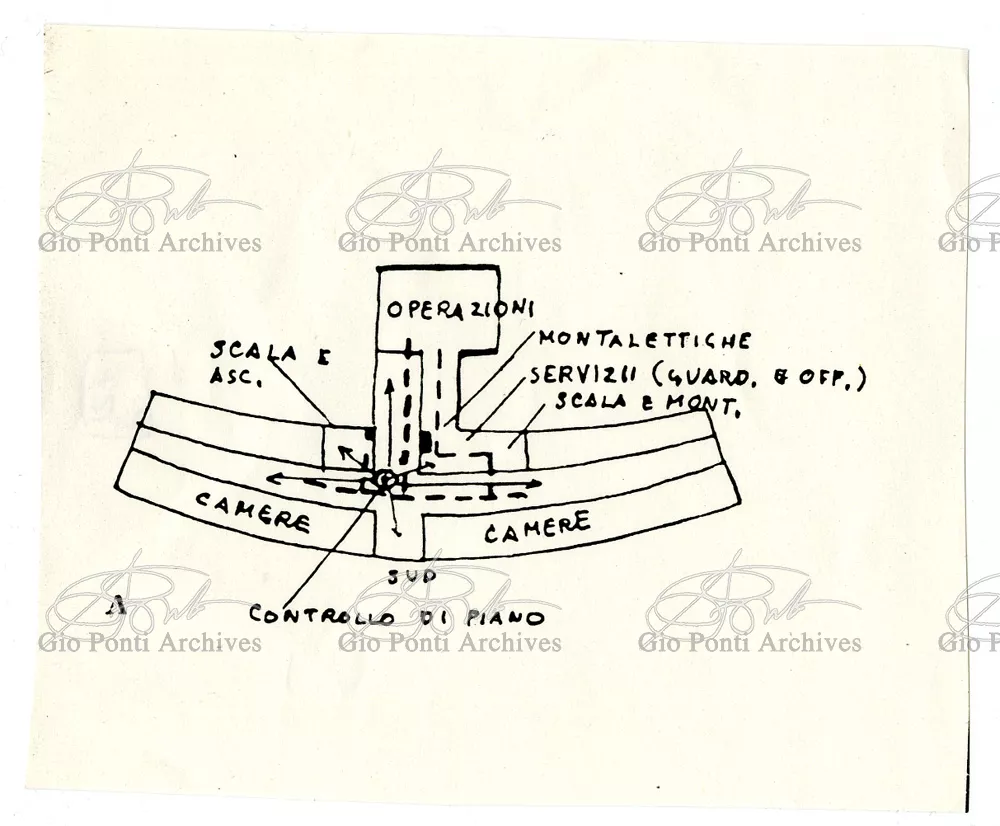 Gio Ponti Archives
Gio Ponti Archives
Gio Ponti Archives
Gio P
OPERAZIONI
MONTALETTIGHE
SCALA E
ASC.
SERVIZII (GUARD. E OFF.)
SCALA E MONT.
CAMERE
CAMERE
SUD
A
CONTROLLO DI PIANO
Gio Ponti Archives
Gio Ponti Archives
Gio Ponti Archives
Gio P